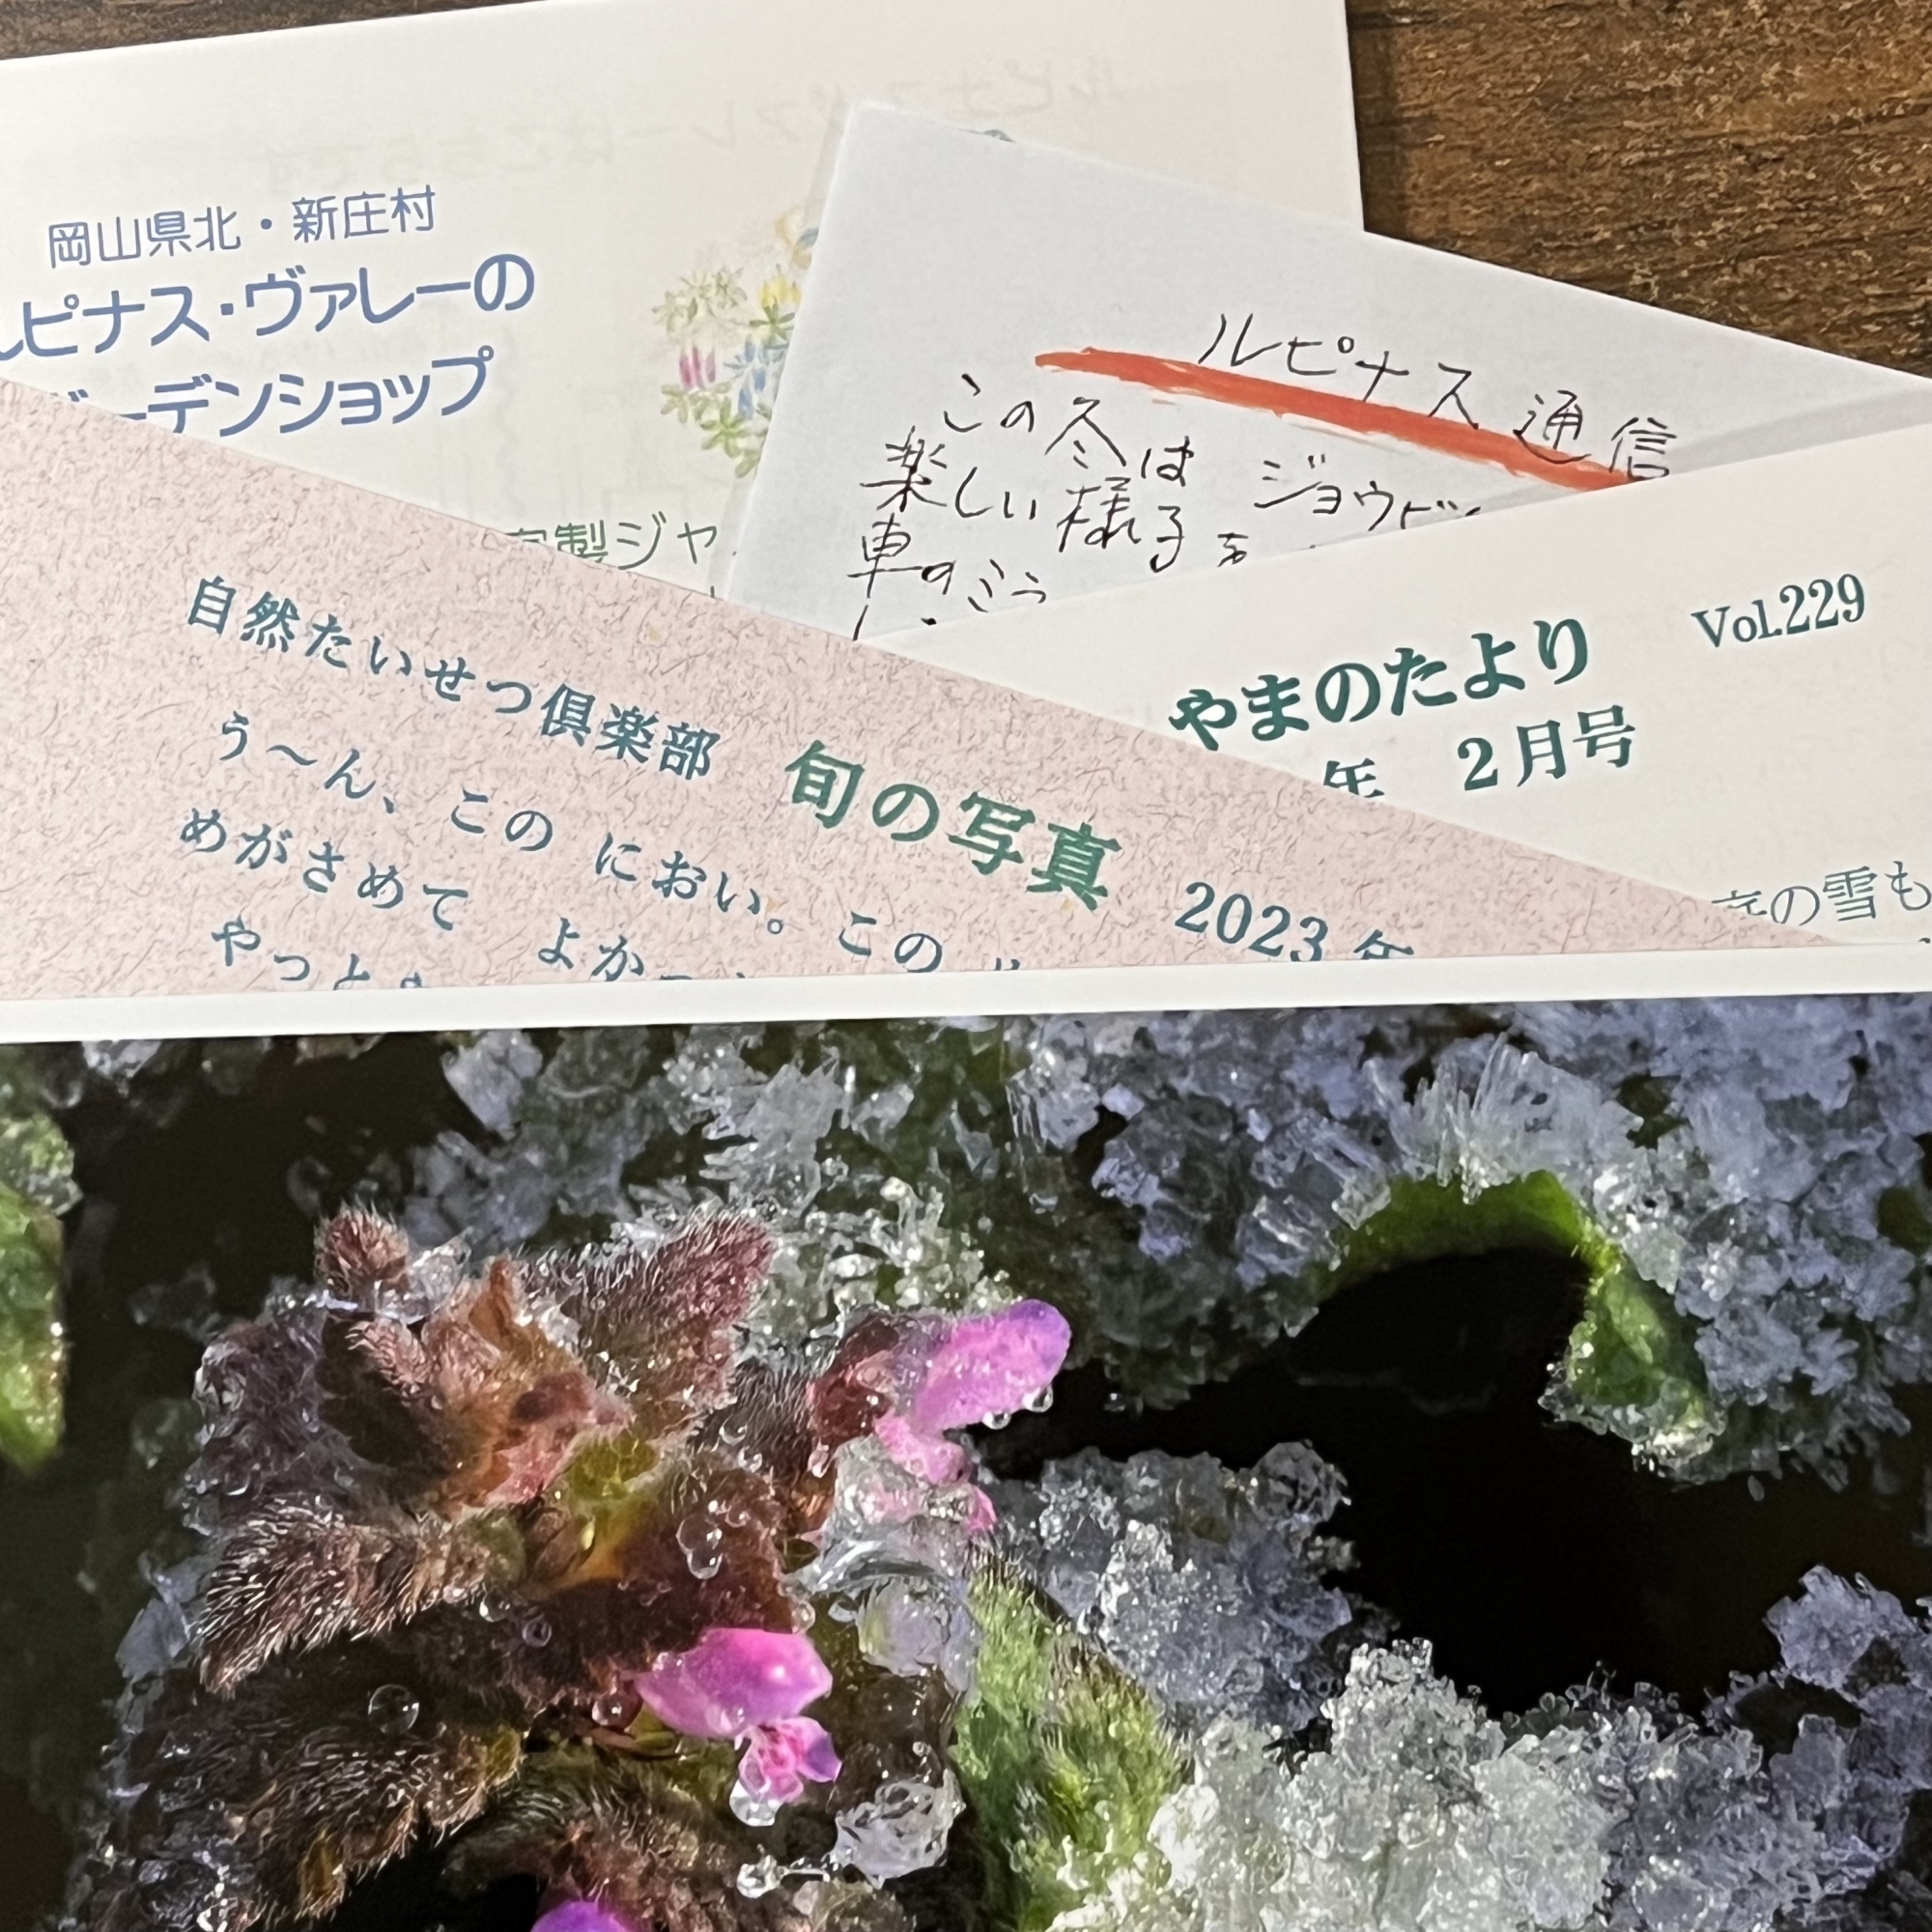 岡山県北・新庄村
ルピナス・ヴァレーの
ガーデンショップ
製ジャ
ルピナス通信
この冬は ジョウビ
楽しい様子を
車のミラ
やまのたより Vol.229
年 2月号
庭の雪も
自然たいせつ倶楽部 旬の写真 2023年
う～ん、この におい。この
めがさめて よかっ
やっと